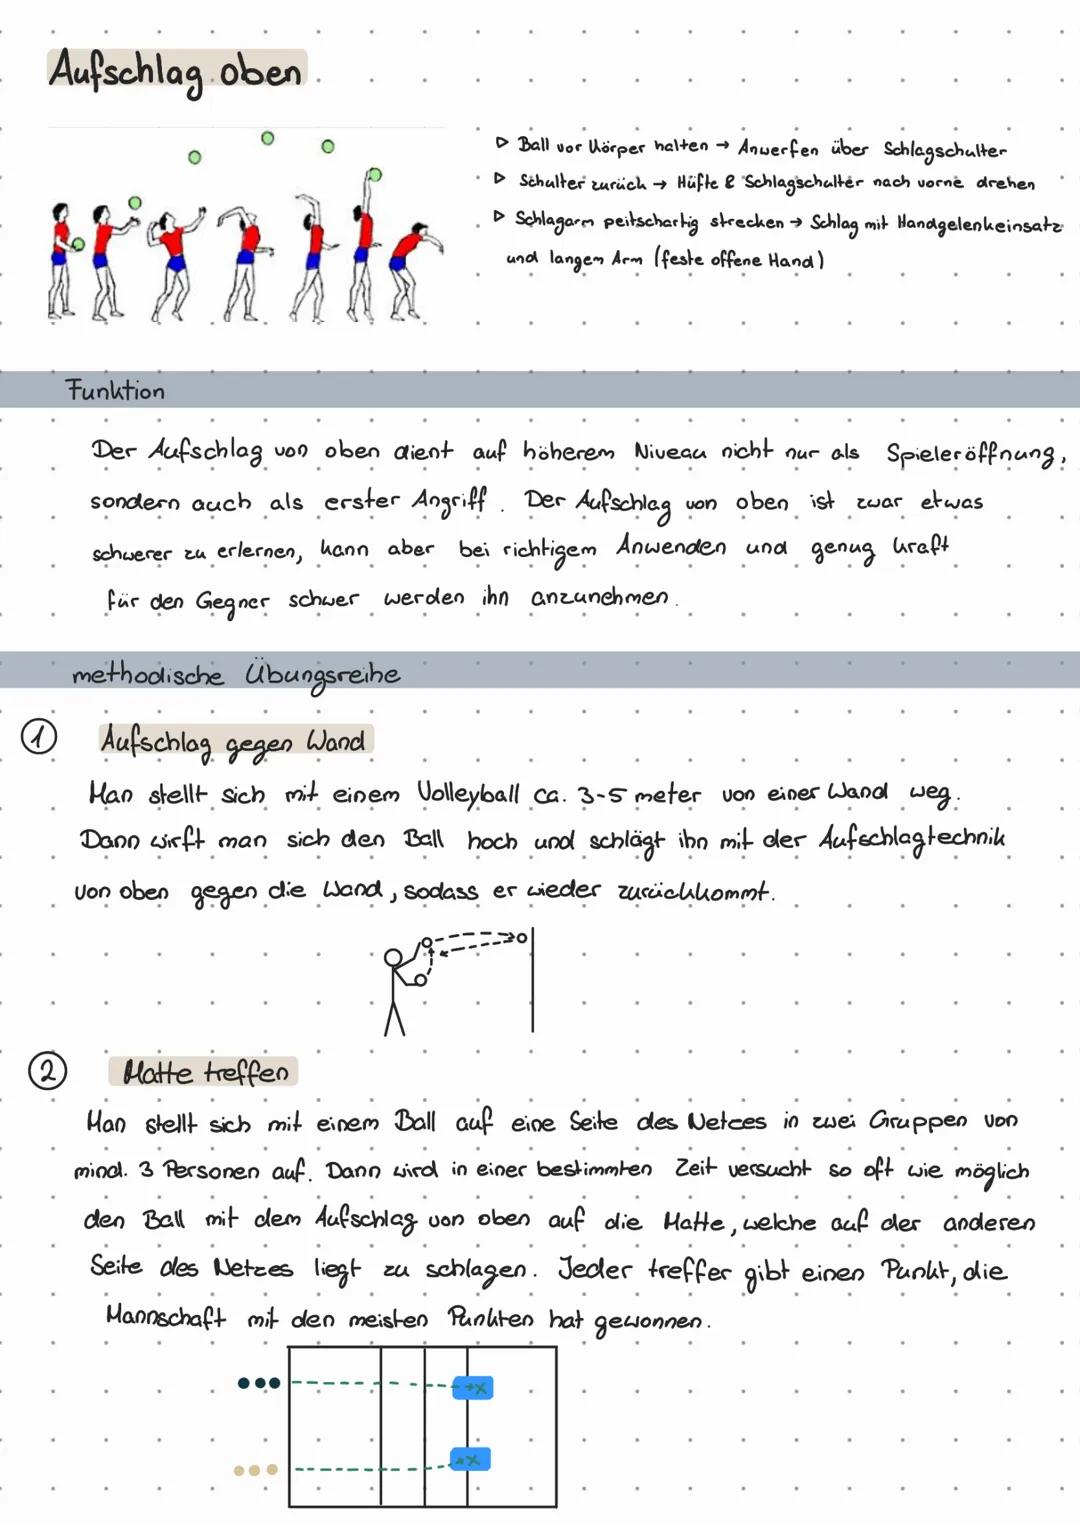 Aufschlag oben
▷ Ball vor Körper halten → Anwerfen über Schlagschulter
▷ Schulter zurück → Hüfte & Schlagschulter nach vorne drehen
▷ Schlagarm peitschartig strecken → Schlag mit Handgelenkeinsatz
und langem Arm (feste offene Hand)
Funktion
Der Aufschlag von oben dient auf höherem Niveau nicht nur als Spieleröffnung,
sondern auch als erster Angriff. Der Aufschlag von oben ist zwar etwas
schwerer zu erlernen, kann aber bei richtigem Anwenden und genug kraft
für den Gegner schwer werden ihn anzunehmen.
methodische Übungsreihe
① Aufschlag gegen Wand
Man stellt sich mit einem Volleyball ca. 3-5 meter von einer Wand weg.
Dann wirft man sich den Ball hoch und schlägt ihn mit der Aufschlagtechnik
von oben gegen die Wand, sodass er wieder zurückkommt.
② Matte treffen
Man stellt sich mit einem Ball auf eine Seite des Netzes in zwei Gruppen von
mind. 3 Personen auf. Dann wird in einer bestimmten Zeit versucht so oft wie möglich
den Ball mit dem Aufschlag von oben auf die Matte, welche auf der anderen
Seite des Netzes liegt zu schlagen. Jeder treffer gibt einen Punkt, die
Mannschaft mit den meisten Punkten hat gewonnen.